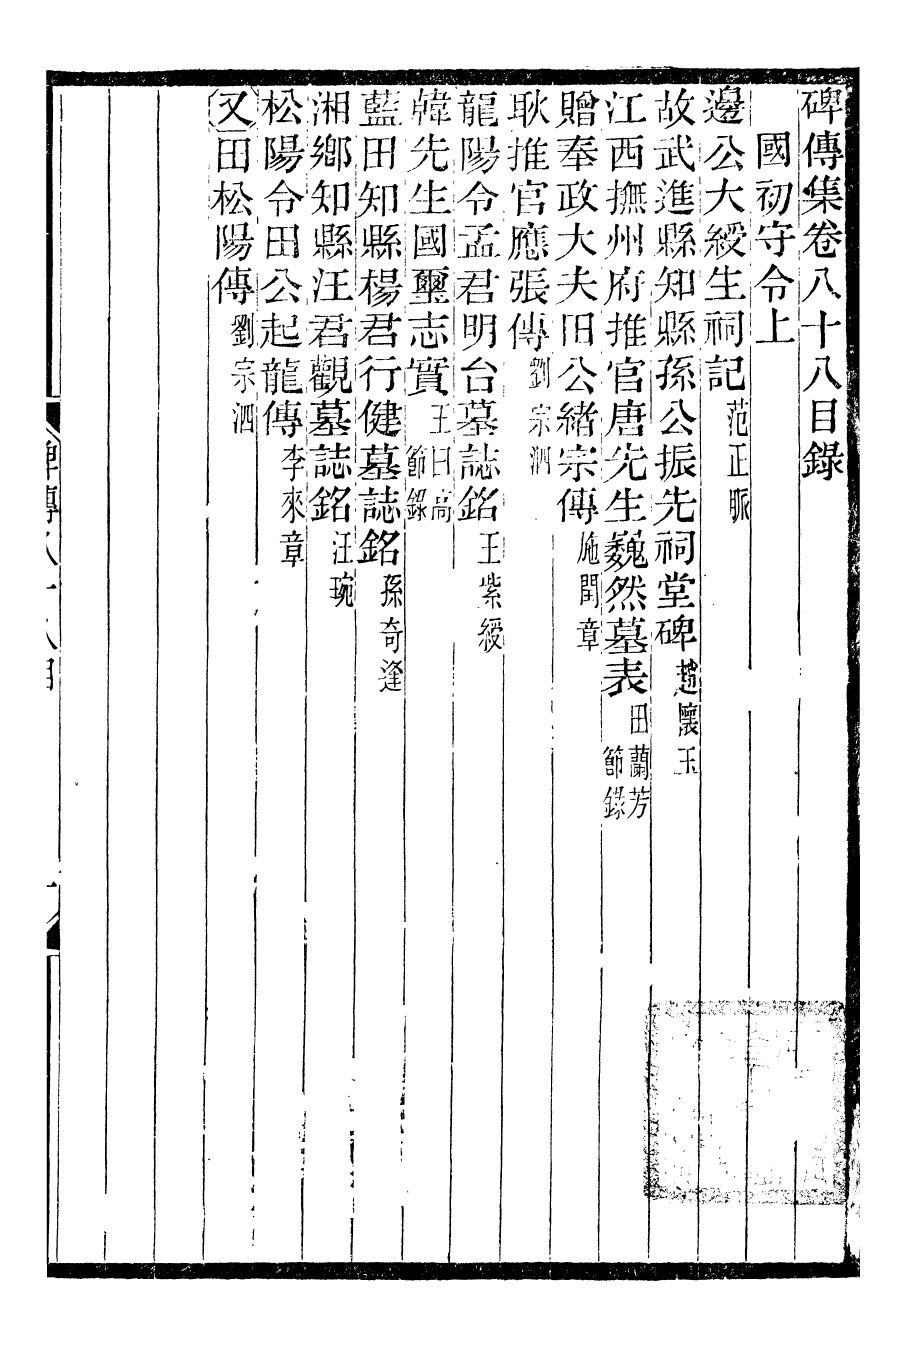 碑傳集卷八十八目錄
國初守令上
邊公大綬生祠記范正脈
故武進縣知縣孫公振先祠堂碑趙懷玉
江西撫州府推官唐先生巍然墓表田蘭芳節錄
贈奉政大夫旧公緒宗傳施閏章
耿推官應張傳劉宗泗
龍陽令孟君明台墓誌銘王紫綬
韓先生國璽志實王曰高節錄
藍田知縣楊君行健墓誌銘孫奇逢
湘鄉知縣汪君觀墓誌銘汪琬
松陽令田公起龍傳李來章
又田松陽傳劉宗泗
碑傳八十八目
一